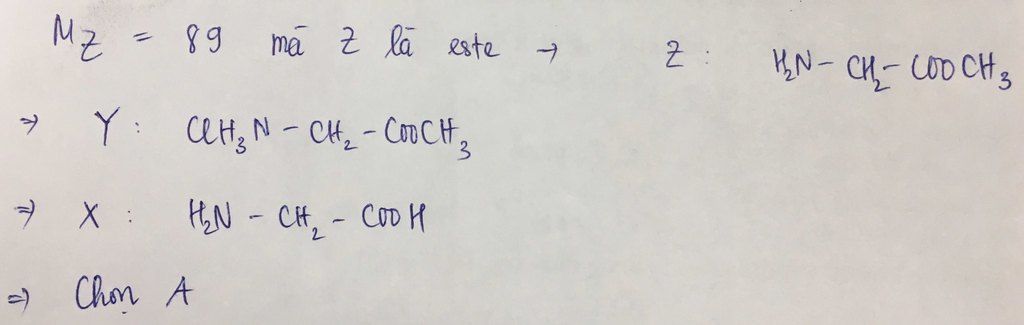 M_Z = 89 mà Z là este → Z : H₂N – CH₂ – COOCH₃
⇒ Y : ClH₃N – CH₂ – COOCH₃
⇒ X : H₂N – CH₂ – COOH
⇒ Chọn A